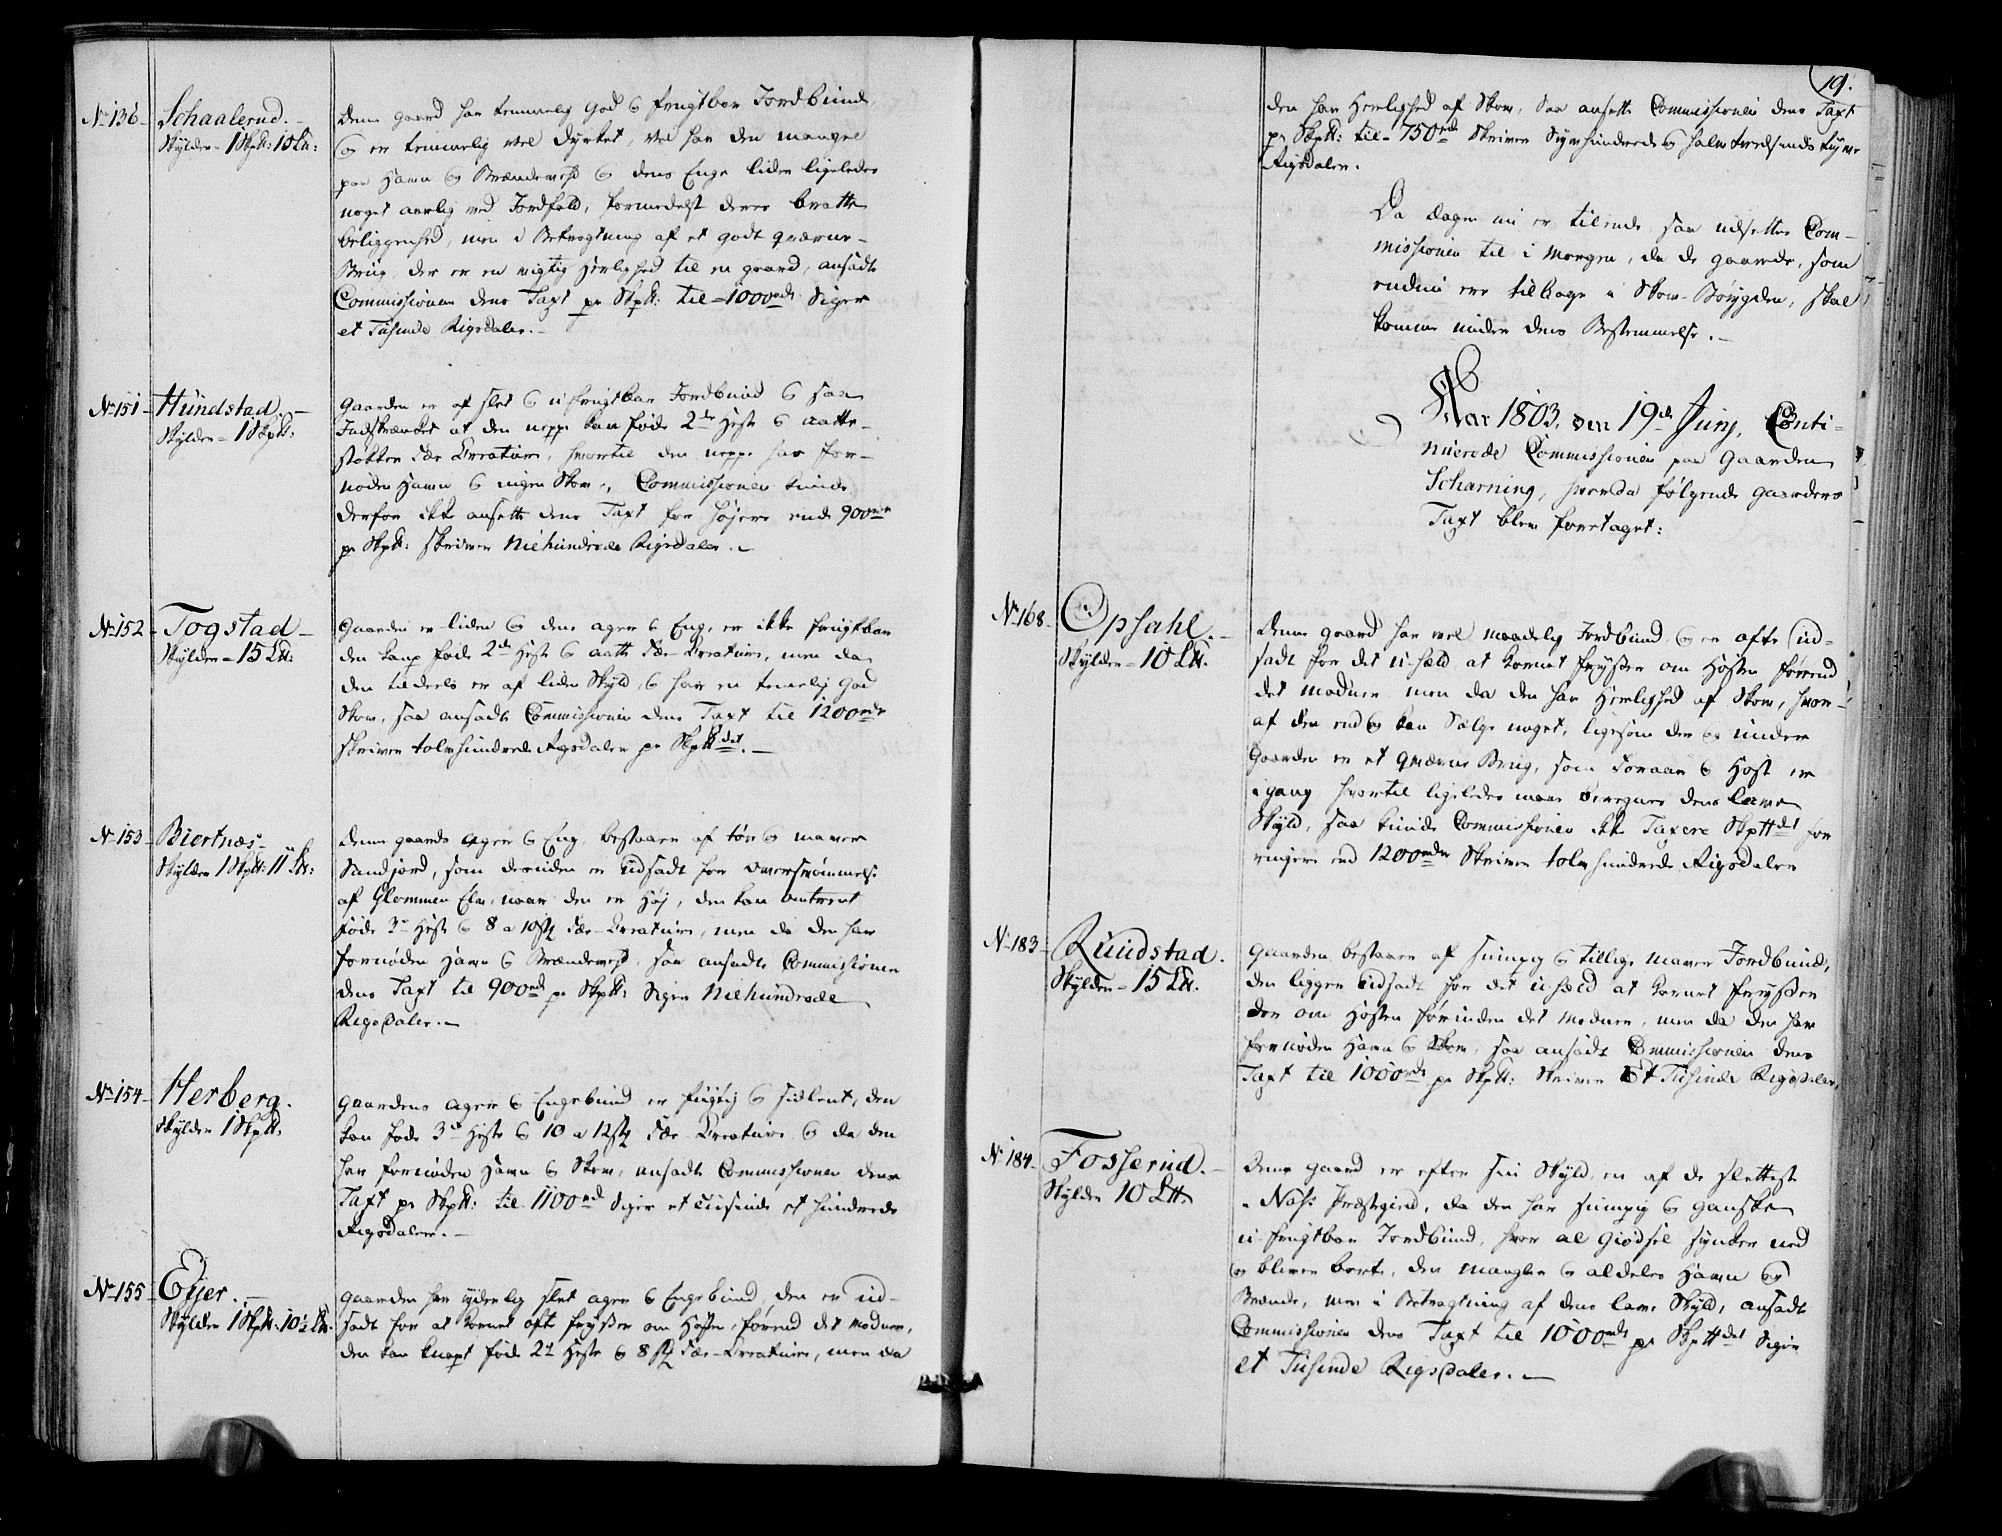 No 136. Schaalerud.
Skylder 1 Skpd: 10 Ln:
Denne gaard har temmelig god og frugtbar Jordbund,
og er temmelig vel dyrket, vel har den mangel
paa Havn og Brændeved og dens Enge lider ligeledes
noget aarlig ved Jordfald, formedelst deres bratte
beliggenhed, men i Betragtning af et godt qværne-
Brug, der er en vigtig Herlighed til en gaard, ansadte
Commissionen dens Taxt pr Skpd: til 1000rd Siger
et Tusinde Rigsdaler.
No 151 Hundstad.
Skylder 1 Skpd:
Gaarden er af slet og ufrugtbar Jordbund og saa
Indskrænket at den neppe kan føde 2de Heste og aatte
støkker Fæe Creature, hvortil den neppe har for-
nøden Havn og ingen Skov, Commissionen kunde
derfor ikke ansette dens Taxt for høyere end 900rd
pr Skpd: skriver Niehundrede Rigsdaler.
No 152 Togstad
Skylder 15 Ltt:
Gaarden er liden og dens ager og Eng, er ikke frugtbar
den kan føde 2de Heste og aatte Fæe-Creature, men da
den tildeels er af liden Skyld, og har en temelig god
Skov, saa ansadte Commissionen dens Taxt til 1200rd
skriver tolvhundrede Rigsdaler pr Skpttdet.
No 153 Biertnæs
Skylder 1 Skptt: 11 Ltt:
Denne gaards ager og Eng, bestaaer af tør og mager
Sandjord, som desuden er udsadt for oversvømmelse
af Glommen Elv, naar den er Høj, den kan omtrent
føde 3de Heste og 8 a 10 stk Fæe-Creature, men da den har
fornøden Havn og Brændeved, saa ansadte Commissionen
dens Taxt til 900rd pr Skptt: Siger Niehundrede
Rigsdaler.
No 154 Herberg.
Skylder 1 Skptt:
Gaardens ager og Engebund er fugtig og sidlent, den
kan føde 3de Heste og 10 a 12 stk Fæe-Creature, og da den
har fornøden Havn og Skov, ansadte Commissionen dens
Taxt pr Skptt: til 1100rd Siger et tusinde et hundrede
Rigsdaler.
No 155 Eyer.
Skylder 1 Skptt: 10½ Ltt.
Gaarden har yderlig slet ager og Engebund, den er ud-
sadt for at kornet ofte fryser om Høsten, førend det modner,
den kan knapt føde 2de Heste og 8 stk Fæe-Creature, men da
19.
den har Herlighed af Skov, saa ansatte Commissionen dens Taxt
pr Skptt: til 750rd Skriver Syvhundrede og halvtredsindstyve
Rigsdaler.
Da dagen nu er tilende saa udsettes Com-
missionen til i morgen, da de gaarde, som
endnu ere tilbage i Skov-Bøygden, skal
komme under dens Bestemmelse.
Aar 1803, den 19de Junj, Conti-
nuerede Commissionen paa Gaarden
Scharning, hvorda følgende gaarders
Taxt blev foretaget:
No 168 Opsahl.
Skylder 10 Ltt.
Denne gaard har vel maadelig Jordbund og er ofte ud-
sadt for det u-held at kornet fryser om Høsten førend
det modner, men da den har Herlighed af Skov, hvor-
af den endog kan Sælge noget, ligesom der og under
Gaarden er et qværne Brug, som Foraar og Høst er
igang, hvortil ligeledes maae beregnes dens lave
Skyld, saa kunde Commissionen ikke Taxere Skpttdet for
ringere end 1200rd Skriver tolvhundrede Rigsdaler
No 183 Rundstad.
Skylder 15 Ltt.
Gaarden bestaaer af sumpig og tillige mager Jordbund,
den ligger udsadt for det u-held at kornet fryser
der om Høsten førinden det modner, men da den har
fornøden Havn og Skov, saa ansadte Commissionen dens
Taxt til 1000rd pr Skptt: Skriver Et Tusinde Rigsdaler.
No 184 Fosserud.
Skylder 10 Ltt
Denne gaard er efter sin Skyld, en af de sletteste
i Næss Præstegield, da den har sumpig og ganske
u-frugtbar Jordbund, hvor al Giødsel synker ned
og bliver borte, den mangler og aldeles Havn og
Brænde, men i Betragtning af dens lave Skyld, ansadte
Commissionen dens Taxt til 1000rd pr Skpttdet Siger
et Tusinde Rigsdaler.